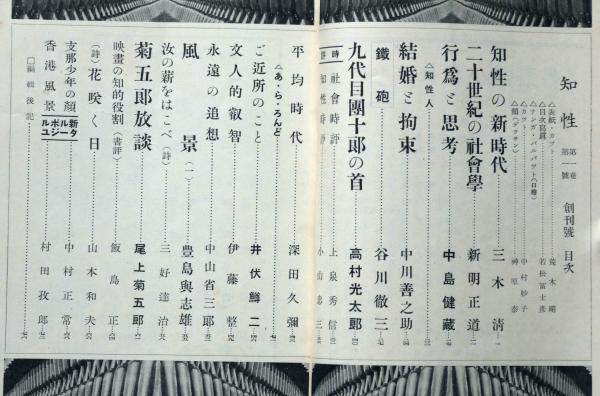 知性 第一卷 第一號 創刊號 目次
△表紙・カット 荒木
△目次寫眞 若松不二彦
△カット 中村妙子
神原泰
知性の新時代 三木清
二十世紀の社會學 新明正道
行爲と思考 中島健藏
△知性人
結婚と拘束 中川善之助
鐵砲 谷川徹三
九代目團十郎の首 高村光太郎
時評 社會時評 上泉秀信
知性時評 小山
平均時代 深田久彌
△あ・ら・ろんど
ご近所のこと 井伏鱒二
文人的叡智 伊藤整
永遠の追想 中山省三郎
風景(一) 豊島與志雄
汝の薪をはこべ(詩) 三好達治
菊五郎放談 尾上菊五郎
映畫の知的役割(書評) 飯島正
(詩)花咲く日 山本和夫
支那少年の顔 中村正常
新ルポルタージュ
香港風景 村田孜郎
□編輯後記